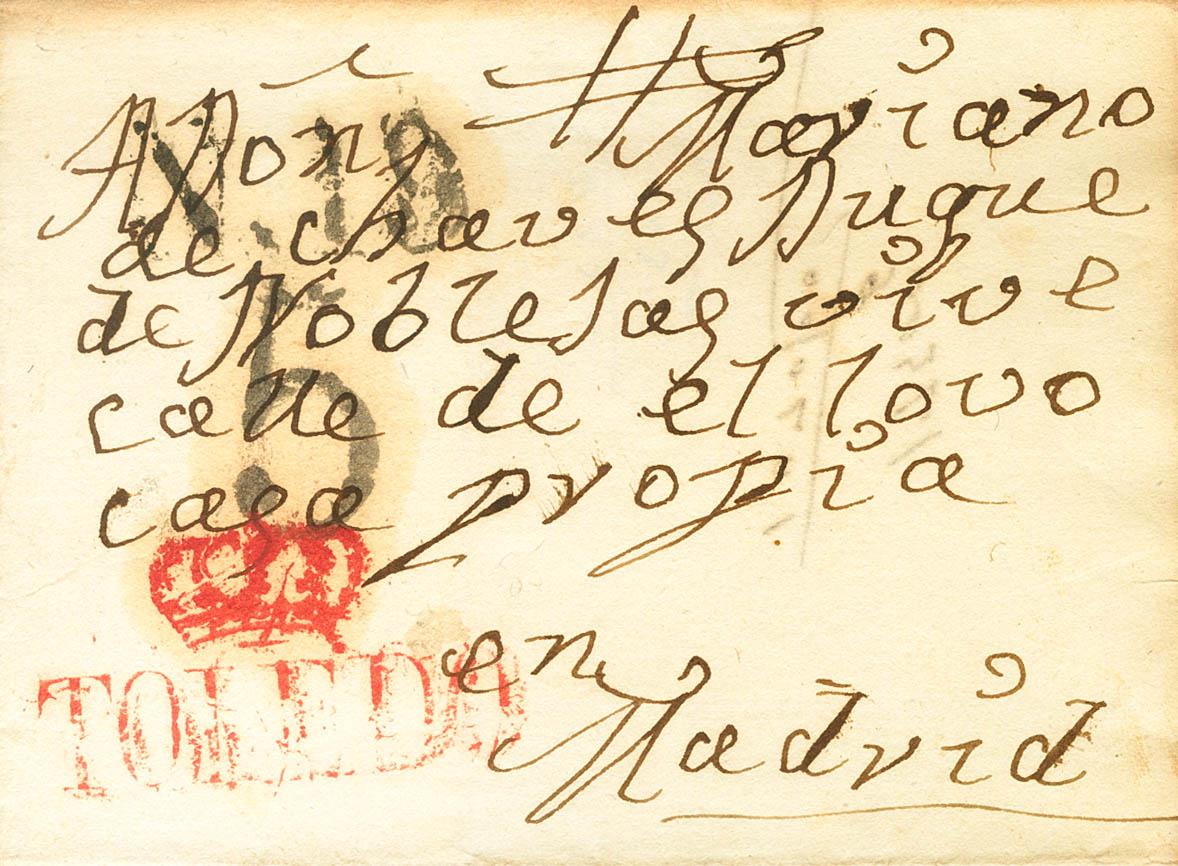 A Doñ Mariano
de chaves Duque
de Noblesas vive
calle de el lovo
casa propia
5
TOLEDO
en
Madrid